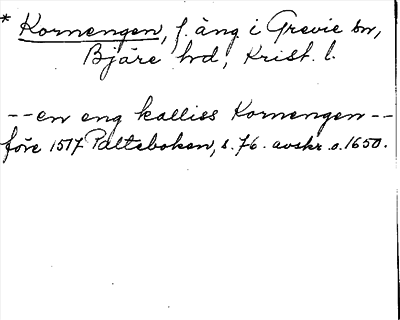 * Kornengen, f. äng i Grevie sn,
Bjäre hd, Krist. l.
--en eng kalliss Kornengen--
före 1517 Palteboken, s. 76. avskr. o. 1650.